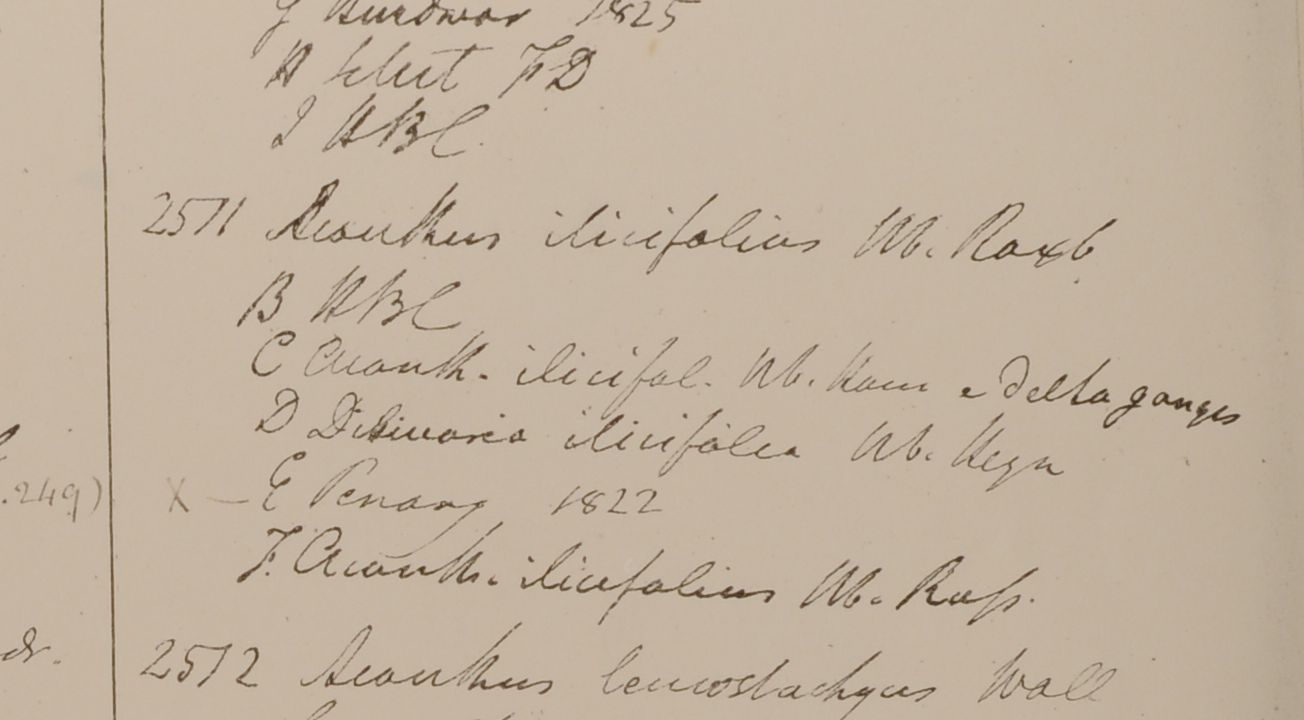 G Hurdwar 1825
H Silhet FD
I HBC
2511 Acanthus ilicifolius Hb. Roxb
B HBC
C Acanth. ilicifol. Hb. Ham e Delta ganges
D Dilivaria ilicifolia Hb. Heyn
.249) X — E Penang 1822
F. Acanth. ilicifolius Hb. Rufs.
dr.
2512 Acanthus leucostachyus Wall